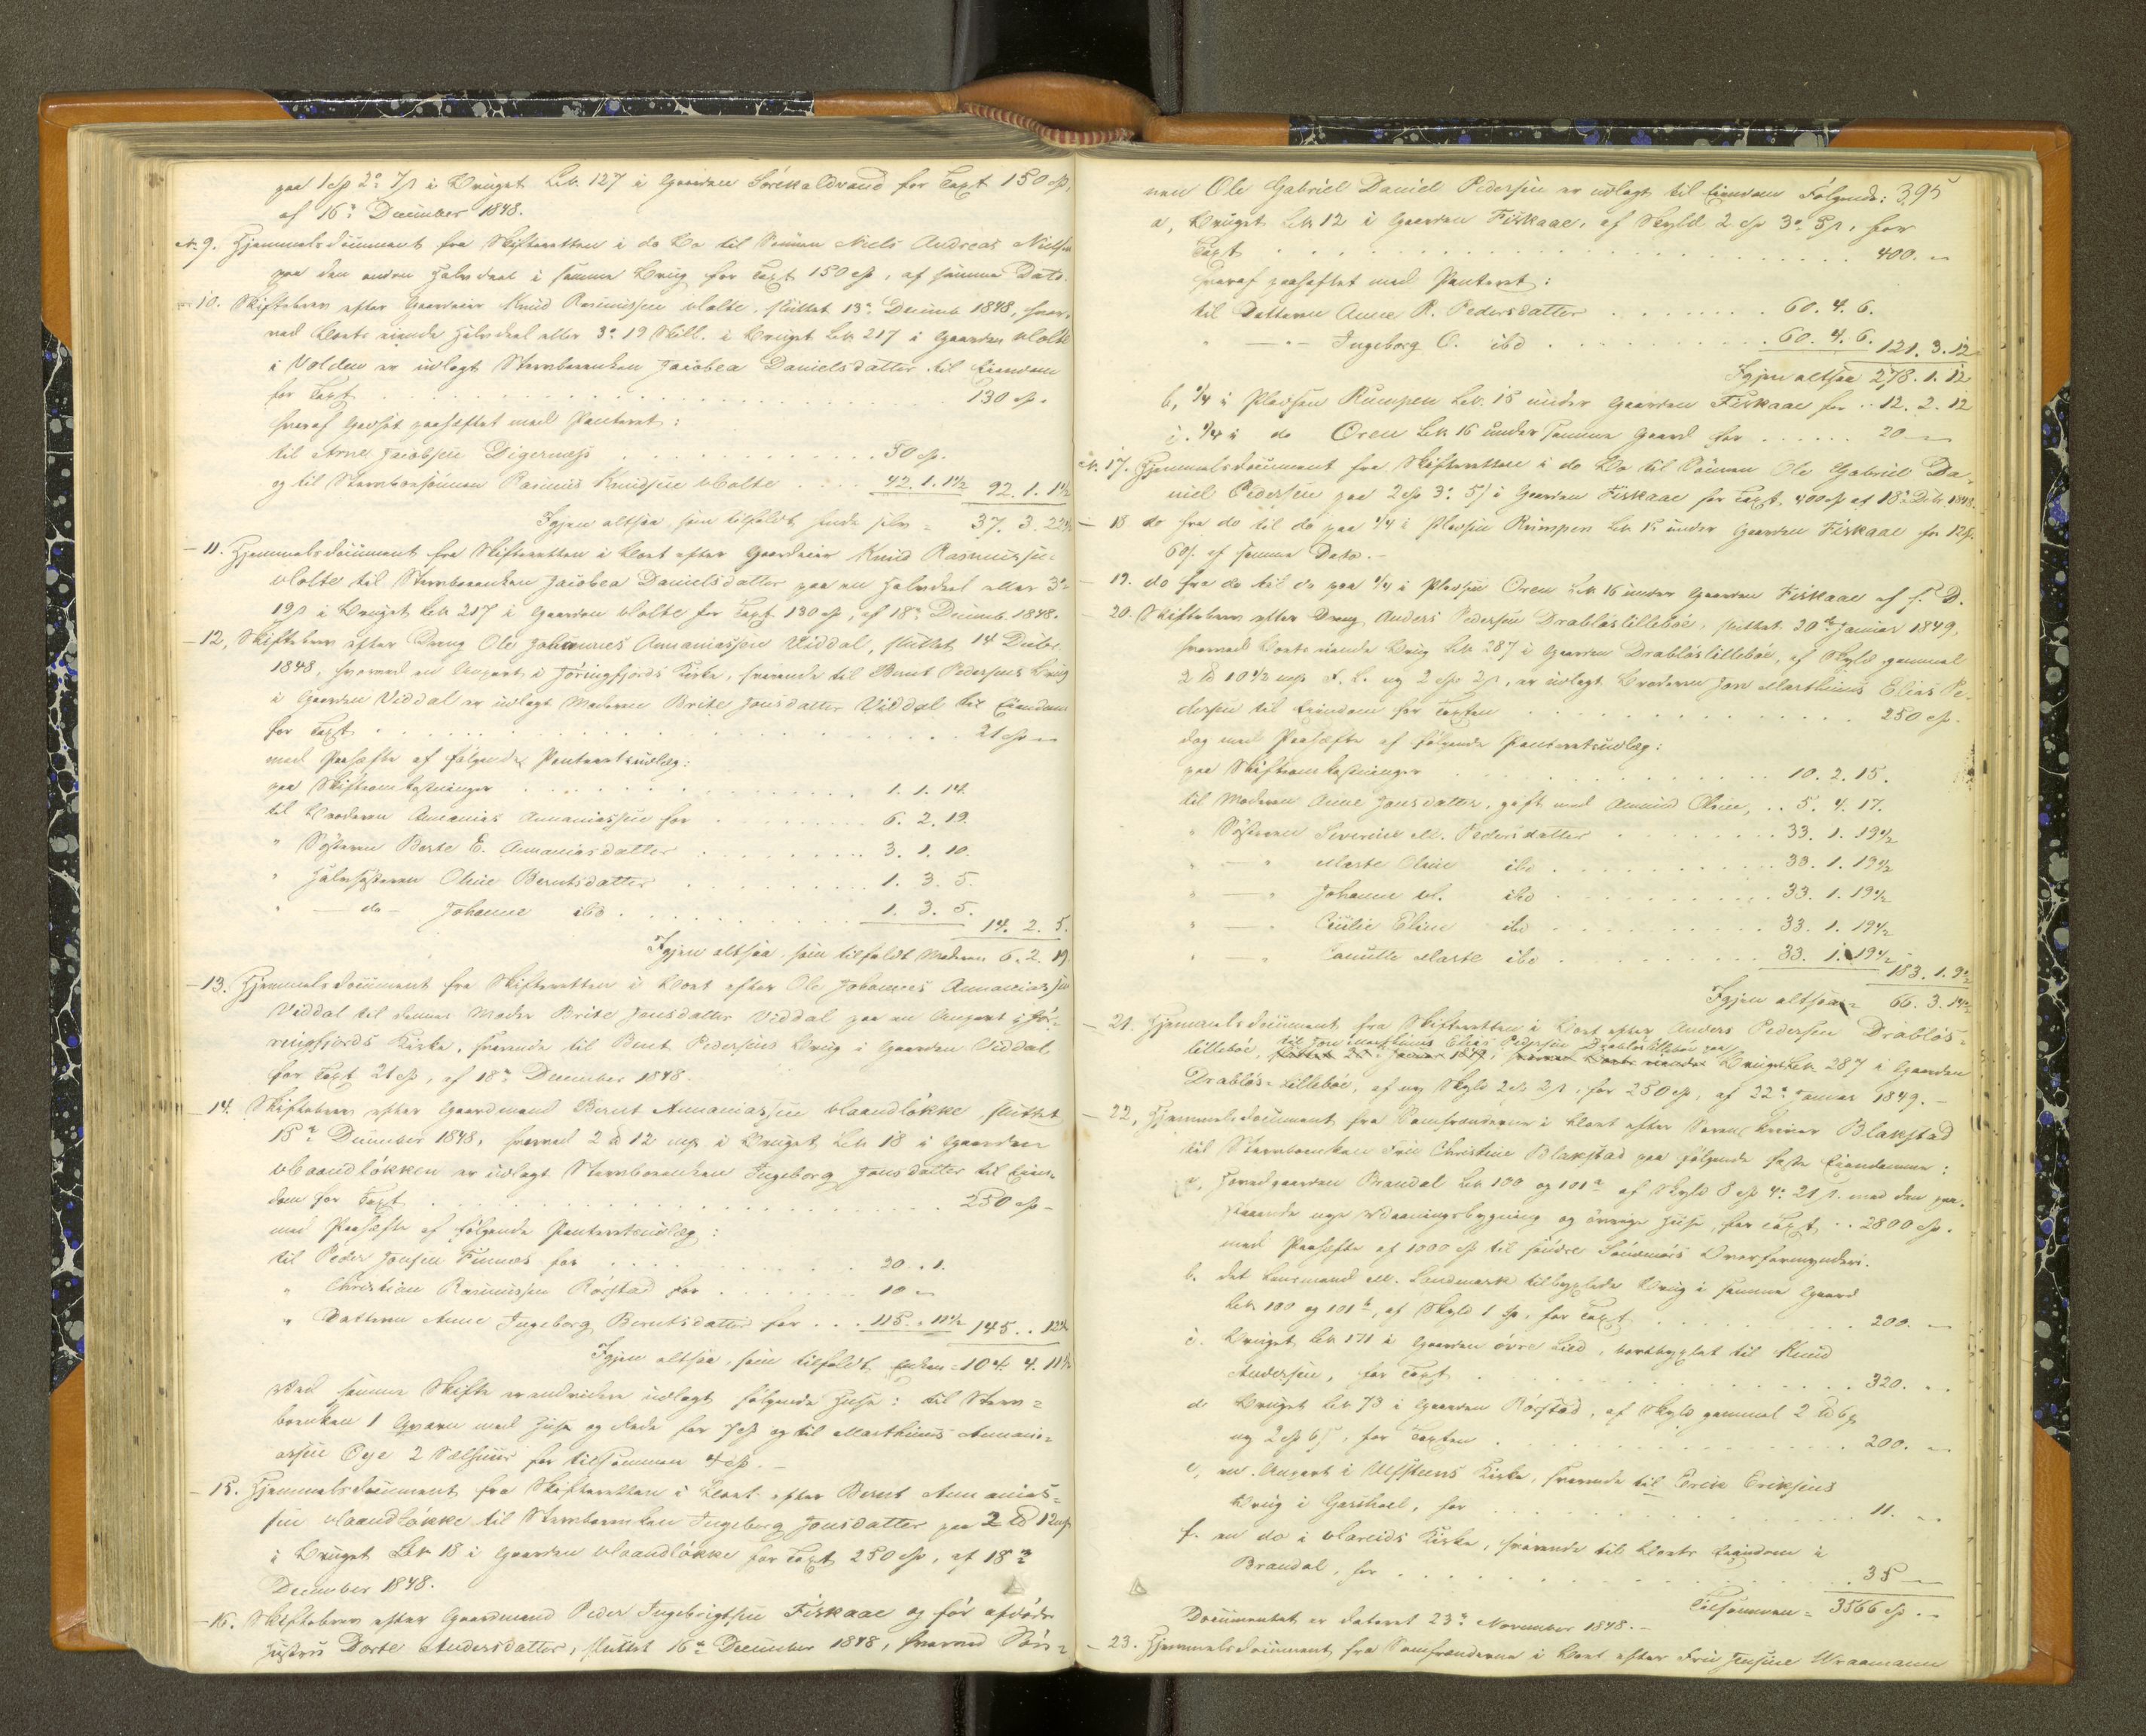 paa 1 Sp 2 o 7 s i Bruget Lb. 127 i Gaarden Sørekaldvand for Taxt 150 Sp,
af 16 December 1848.
N. 9. Hjemmelsdocument fra Skifteretten i do Bo til Sønnen Niels Andreas Nielsen
paa den anden Halvdeel i samme Brug for Taxt 150 Sp, af samme Dato.
10. Skiftebrev efter Gaardeier Knud Rasmussen Molte, sluttet 13 Decemb 1848, hvor-
ved Boets eiende Halvdeel eller 3 o 19 Skill. i Bruget Lb 217 i Gaarden Molte
i Volden er udlagt Stervboenken Jacobea Danielsdatter til Eiendom
for Taxt . . . 130 Sp.
hvoraf Godset paaheftet med Panteret:
til Arne Jacobsen Digernæs . . . 50 Sp.
og til Stervbosønnen Rasmus Knudsen Molte . . . 42. 1. 1½ 92. 1. 1½
Igjen altsaa, som tilfaldt Enke selv = 37. 3. 22½
- 11. Hjemmelsdocument fra Skifteretten i Boet efter Gaardeier Knud Rasmussen
Molte til Stervboenken Jacobea Danielsdatter paa en Halvdeel eller 3 o
19 s i Bruget Lb 217 i Gaarden Molte for Taxt 130 Sp, af 18 Decemb. 1848.
- 12, Skiftebrev efter Dreng Ole Johannes Annaniassen Viddal, sluttet 14 Decbr.
1848, hvorved en Anpart i Jøringfjords Kirke, svarende til Bernt Pedersens Brug
i Gaarden Viddal er udlagt Moderen Brite Jonsdatter Viddal til Eiendom
for Taxt . . . 21 Sp "
med Paahefte af følgende Panteretsudlæg:
paa Skifteomkostninger . . . 1. 1. 14.
til Broderen Ananias Annaniassen for . . . 6. 2. 19.
" Søsteren Berte E. Annaniasdatter . . . 3. 1. 10.
" Halvsøsteren Oline Berntsdatter . . . 1. 3. 5.
" — do — Johanne ibd . . . 1. 3. 5. 14. 2. 5.
Igjen altsaa, som tilfaldt Moderen 6. 2. 19
- 13. Hjemmelsdocument fra Skifteretten i Boet efter Ole Johannes Annaniassen
Viddal til dennes Moder Brite Jonsdatter Viddal paa en Anpart i Jø-
ringfjords Kirke, svarende til Bernt Pedersens Brug i Gaarden Viddal
for Taxt 21 Sp, af 18 December 1848.
- 14. Skiftebrev efter Gaardmand Bernt Annaniassen Maandløkke, sluttet
15 December 1848, hvorved 2 W 12 mp i Bruget Lb 18 i Gaarden
Maandløkken er udlagt Stervboenken Ingeborg Jonsdatter til Eien-
dom for Taxt . . . 250 Sp -
med Paahefte af følgende Panteretsudlæg:
til Peder Jonsen Finnæs for . . . 20 . . 1.
" Christian Rasmussen Rørstad for . . . 10 "
" Datteren Anne Ingeborg Berntsdatter for . . . 115. . 11½ 145. . 12½
Igjen altsaa, som tilfaldt Enken = 104. 4. 11½
Ved samme Skifte er endvidere udlagt følgende Huse: til Sterv-
boenken 1 Qværn med Huse og Rede for 7 Sp og til Marthinus Annani-
assen Øye 2 for tilsammen 4 Sp. -
- 15. Hjemmelsdocument fra Skifteretten i Boet efter Bernt Annanias-
sen Maandløkke til Stervboenken Ingeborg Jonsdatter paa 2 W 12 mp
i Bruget Lb 18 i Gaarden Maandløkke for Taxt 250 Sp, af 18
December 1848.
- 16. Skiftebrev efter Gaardmand Peder Ingebrigtsen Fiskaae og før afdøde
Hustru Dorte Andersdatter, sluttet 16 December 1848, hvorved Søn-
395
nen Ole Gabriel Daniel Pedersen er udlagt til Eiendom Følgende:
a, Bruget Lb 12 i Gaarden Fiskaae, af Skyld 2 Sp 3 o 5 s, for
Taxt . . . 400. "
hvoraf paaheftet med Panteret:
til Datteren Anne R. Pedersdatter . . . 60. 4. 6.
" — " — Ingeborg O. ibd . . . 60. 4. 6. 121. 3. 12
Igjen altsaa 278. 1. 12
b, 1/4 i Pladsen Rumpen Lb. 15 under Gaarden Fiskaae for . . 12. 2. 12
c. 1/4 i do Oren Lb 16 under samme Gaard for . . . 20 "
N. 17. Hjemmelsdocument fra Skifteretten i do Bo til Sønnen Ole Gabriel Da-
niel Pedersen paa 2 Sp 3 o 5 s i Gaarden Fiskaae for Taxt 400 Sp af 18 Dcbr 1848.
- 18 do fra do til do paa 1/4 i Pladsen Rumpen Lb 15 under Gaarden Fiskaae for 12 Sp.
60 s. af samme Dato. -
- 19. do fra do til do paa 1/4 i Pladsen Oren Lb 16 under Gaarden Fiskaae af s. D.
- 20. Skiftebrev efter Dreng Anders Pedersen Drabløslillebøe, sluttet 20 Januar 1849,
hvorved Boets eiende Brug Lb 287 i Gaarden Drabløslillebøe, af Skyld gammel
2 W 10½ mp F. L. ny 2 Sp 2 s, er udlagt Broderen Jon Marthinus Elias Pe-
dersen til Eiendom for Taxten . . . 250 Sp.
dog med Paahefte af følgende Panteretsudlæg:
paa Skifteomkostninger . . . 10. 2. 15.
til Moderen Anne Jonsdatter, gift med Amund Olsen, . . 5. 4. 17.
" Søsteren Severine M. Pedersdatter . . . 33. 1. 19½
" — " Marte Oline ibd . . . 33. 1. 19½
" — " Johanne M. ibd . . . 33. 1. 19½
" — " Cecilie Eline ibd . . . 33. 1. 19½
" — " Marte ibd . . . 33. 1. 19½ 183. 1. 9½
Igjen altsaa = 66. 3. 14½
- 21. Hjemmelsdocument fra Skifteretten i Boet efter Anders Pedersen Drabløs-
til Jon Marthinus Elias Pedersen Drabløslillebøe paa
lillebøe, Bruget Lb 287 i Gaarden
Drabløs-Lillebøe, af ny Skyld 2 Sp 2 s, for 250 Sp, af 22 Januar 1849. -
- 22, Hjemmelsdocument fra Samfrænderne i Boet efter Sorenskriver Blakstad
til Stervboenken Fru Christine Blakstad paa følgende faste Eiendomme:
a, Hovedgaarden Brandal Lb 100 og 101 a af Skyld 8 Sp 4 o 21 s. med den paa-
staaende nye Vaaningsbygning og øvrige Huse, for Taxt . . 2800 Sp.
med Paahefte af 1000 Sp til søndre Søndmørs Overformynderi.
b. det Lensmand M. Landmark tilbyxlede Brug i samme Gaard
Lb 100 og 101 b, af Skyld 1 Sp, for Taxt . . . 200. "
c. Bruget Lb 171 i Gaarden øvre Lid, bortbyxlet til Knud
Andersen, for Taxt . . . 320. "
d. Bruget Lb 73 i Gaarden Rørstad, af Skyld gammel 2 W 6 mp
ny 2 Sp 6 s, for Taxten . . . 200. "
e, en Anpart i Ulfsteens Kirke, svarende til Erik Eriksens
Brug i Garshoel, for . . . 11. "
f. en do i Hareids Kirke, svarende til Boets Eiendom i
Brandal, for . . . 35 "
Tilsammen = 3566 Sp. "
Documentet er dateret 23 November 1848. -
- 23. Hjemmelsdocument fra Samfrænderne i Boet efter Fru Jensine Wraamann